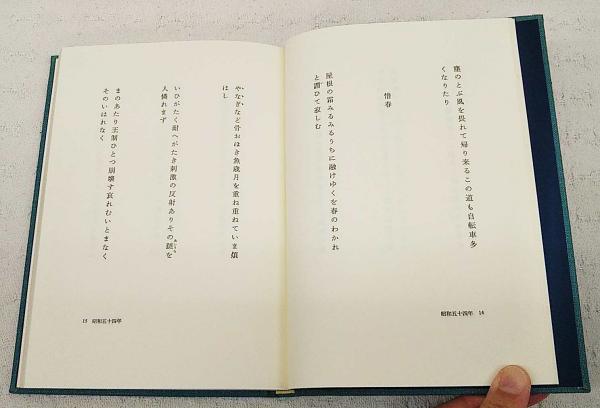 塵のとぶ風を畏れて帰り来るこの道も自転車多
くなりたり
惜春
屋根の霜みるみるうちに融けゆくを春のわかれ
と謂ひて寂しむ
昭和五十四年 14
やなぎなど骨おほき魚歳月を重ね重ねていま煩
はし
いひがたく耐へがたき刺激の反射ありその顔を
人憐れまず
まのあたり王制ひとつ崩壊す哀れむいとまなく
そのいはれなく
15 昭和五十四年